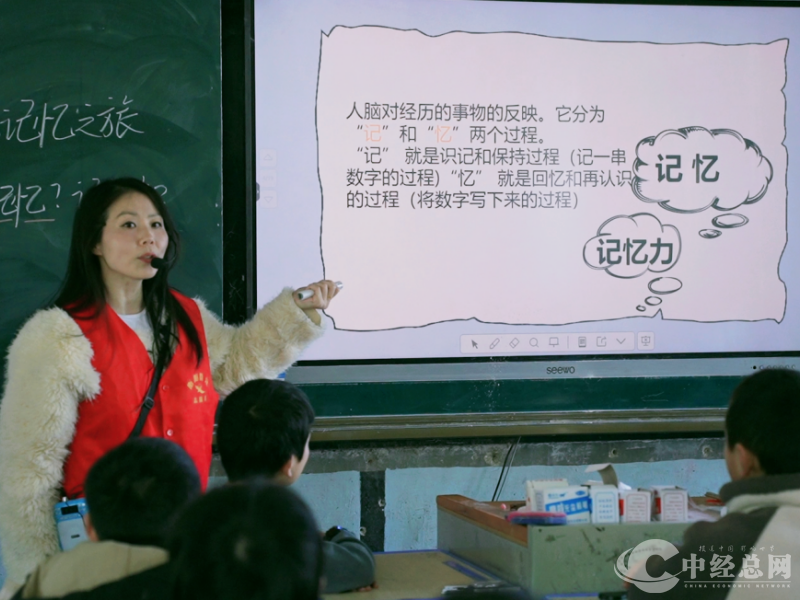 记忆之旅
记忆?
人脑对经历的事物的反映。它分为
“记”和“忆”两个过程。
“记” 就是识记和保持过程（记一串
数字的过程)“忆” 就是回忆和再认识
的过程（将数字写下来的过程）
记 忆
记忆力
seewo
中经总网
CHINA ECONOMIC NETWORK